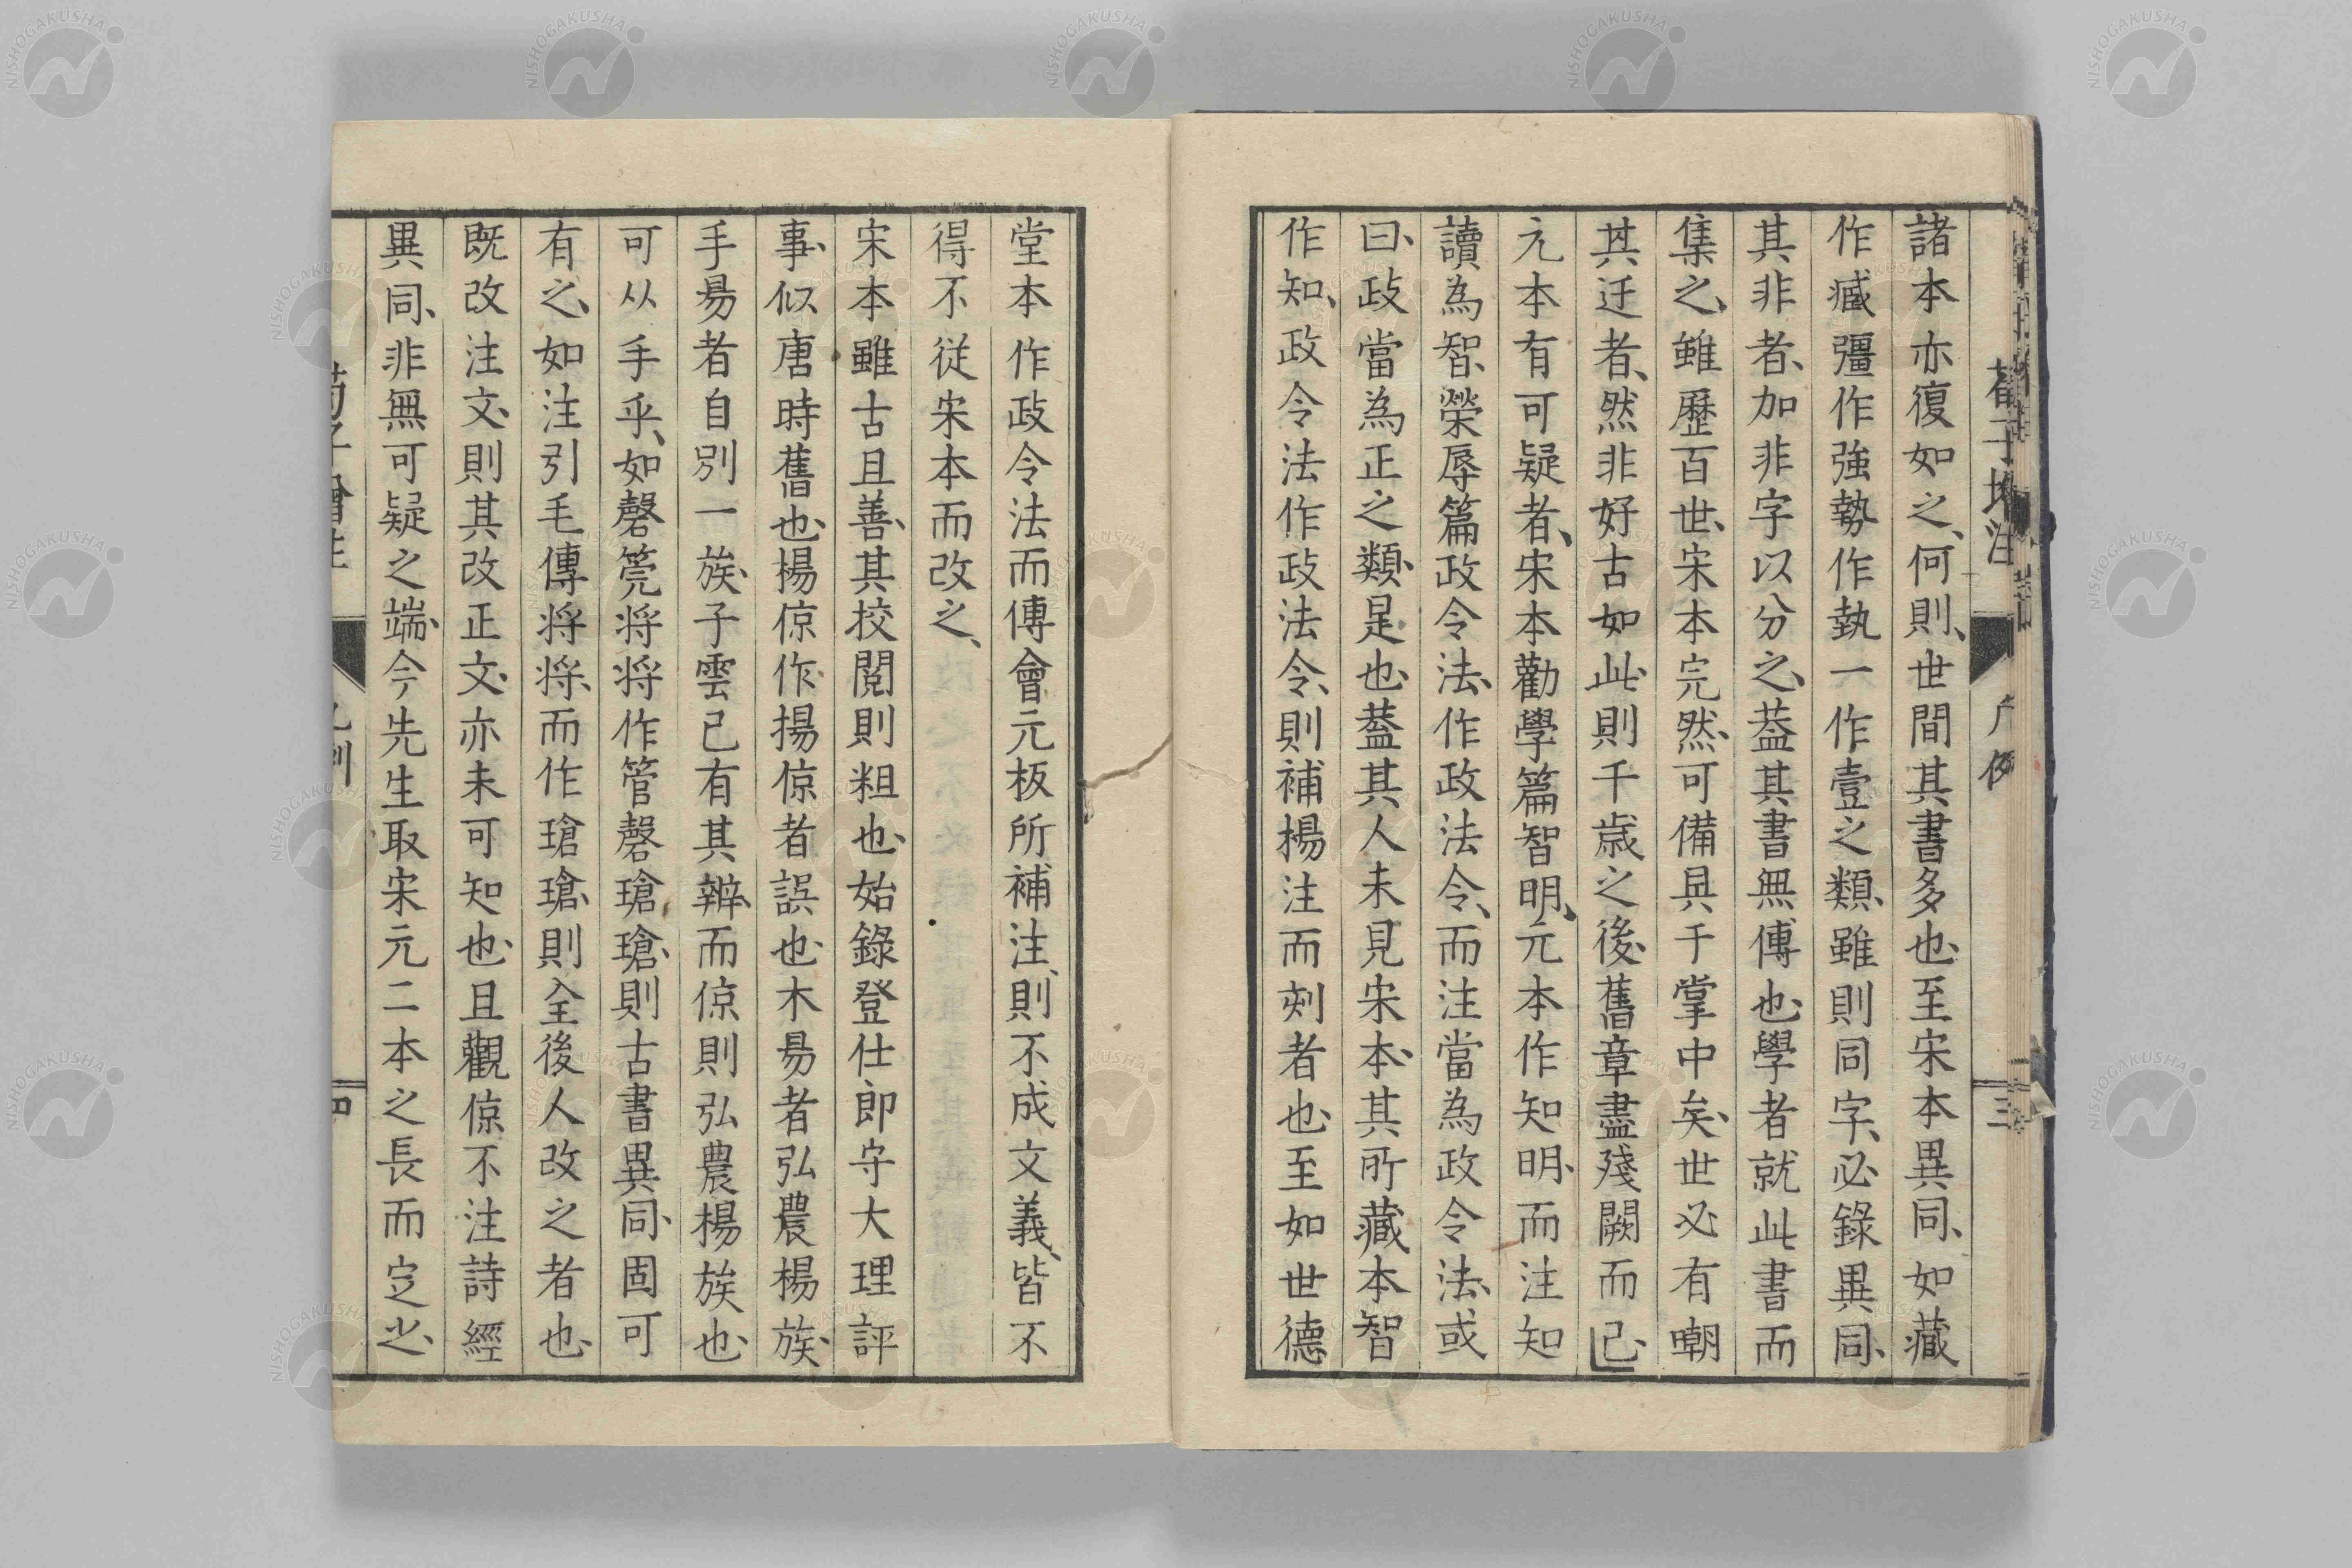 諸本亦復如之、何則、世間其書多也、至宋本異同、如藏
作臧彊作強勢作執一作壹之類、雖則同字、必錄異同、
其非者、加非字以分之、葢其書無傳也、學者就此書而
集之、雖歷百世、宋本完然、可備具于掌中矣、世必有嘲
其迂者、然非好古如此、則千歳之後、舊章盡殘闕而已
元本有可疑者、宋本勸學篇智明、元本作知明、而注知
讀為智、榮辱篇政令法、作政法令、而注當為政令法、或
曰、政當為正之類、是也、葢其人未見宋本、其所藏本智
作知、政令法作政法令、則補楊注而刻者也、至如世德
堂本作政令法而傳會元板所補注、則不成文義、皆不
得不從宋本而改之、
宋本雖古且善、其校閱則粗也、始錄登仕郎守大理評
事、似唐時舊也、楊倞作、揚倞者誤也、木昜者弘農楊族、
手昜者自別一族、子雲已有其辨、而倞則弘農楊族也、
可从手乎、如磬筦将将作管磬瑲瑲、則古書異同、固可
有之、如注引毛傳将将、而作瑲瑲、則全後人改之者也、
既改注文、則其改正文、亦未可知也、且觀倞不注詩經
異同、非無可疑之端、今先生取宋元二本之長而定之、
荀子增注
凡例
三
四
NISHOGAKUSHA